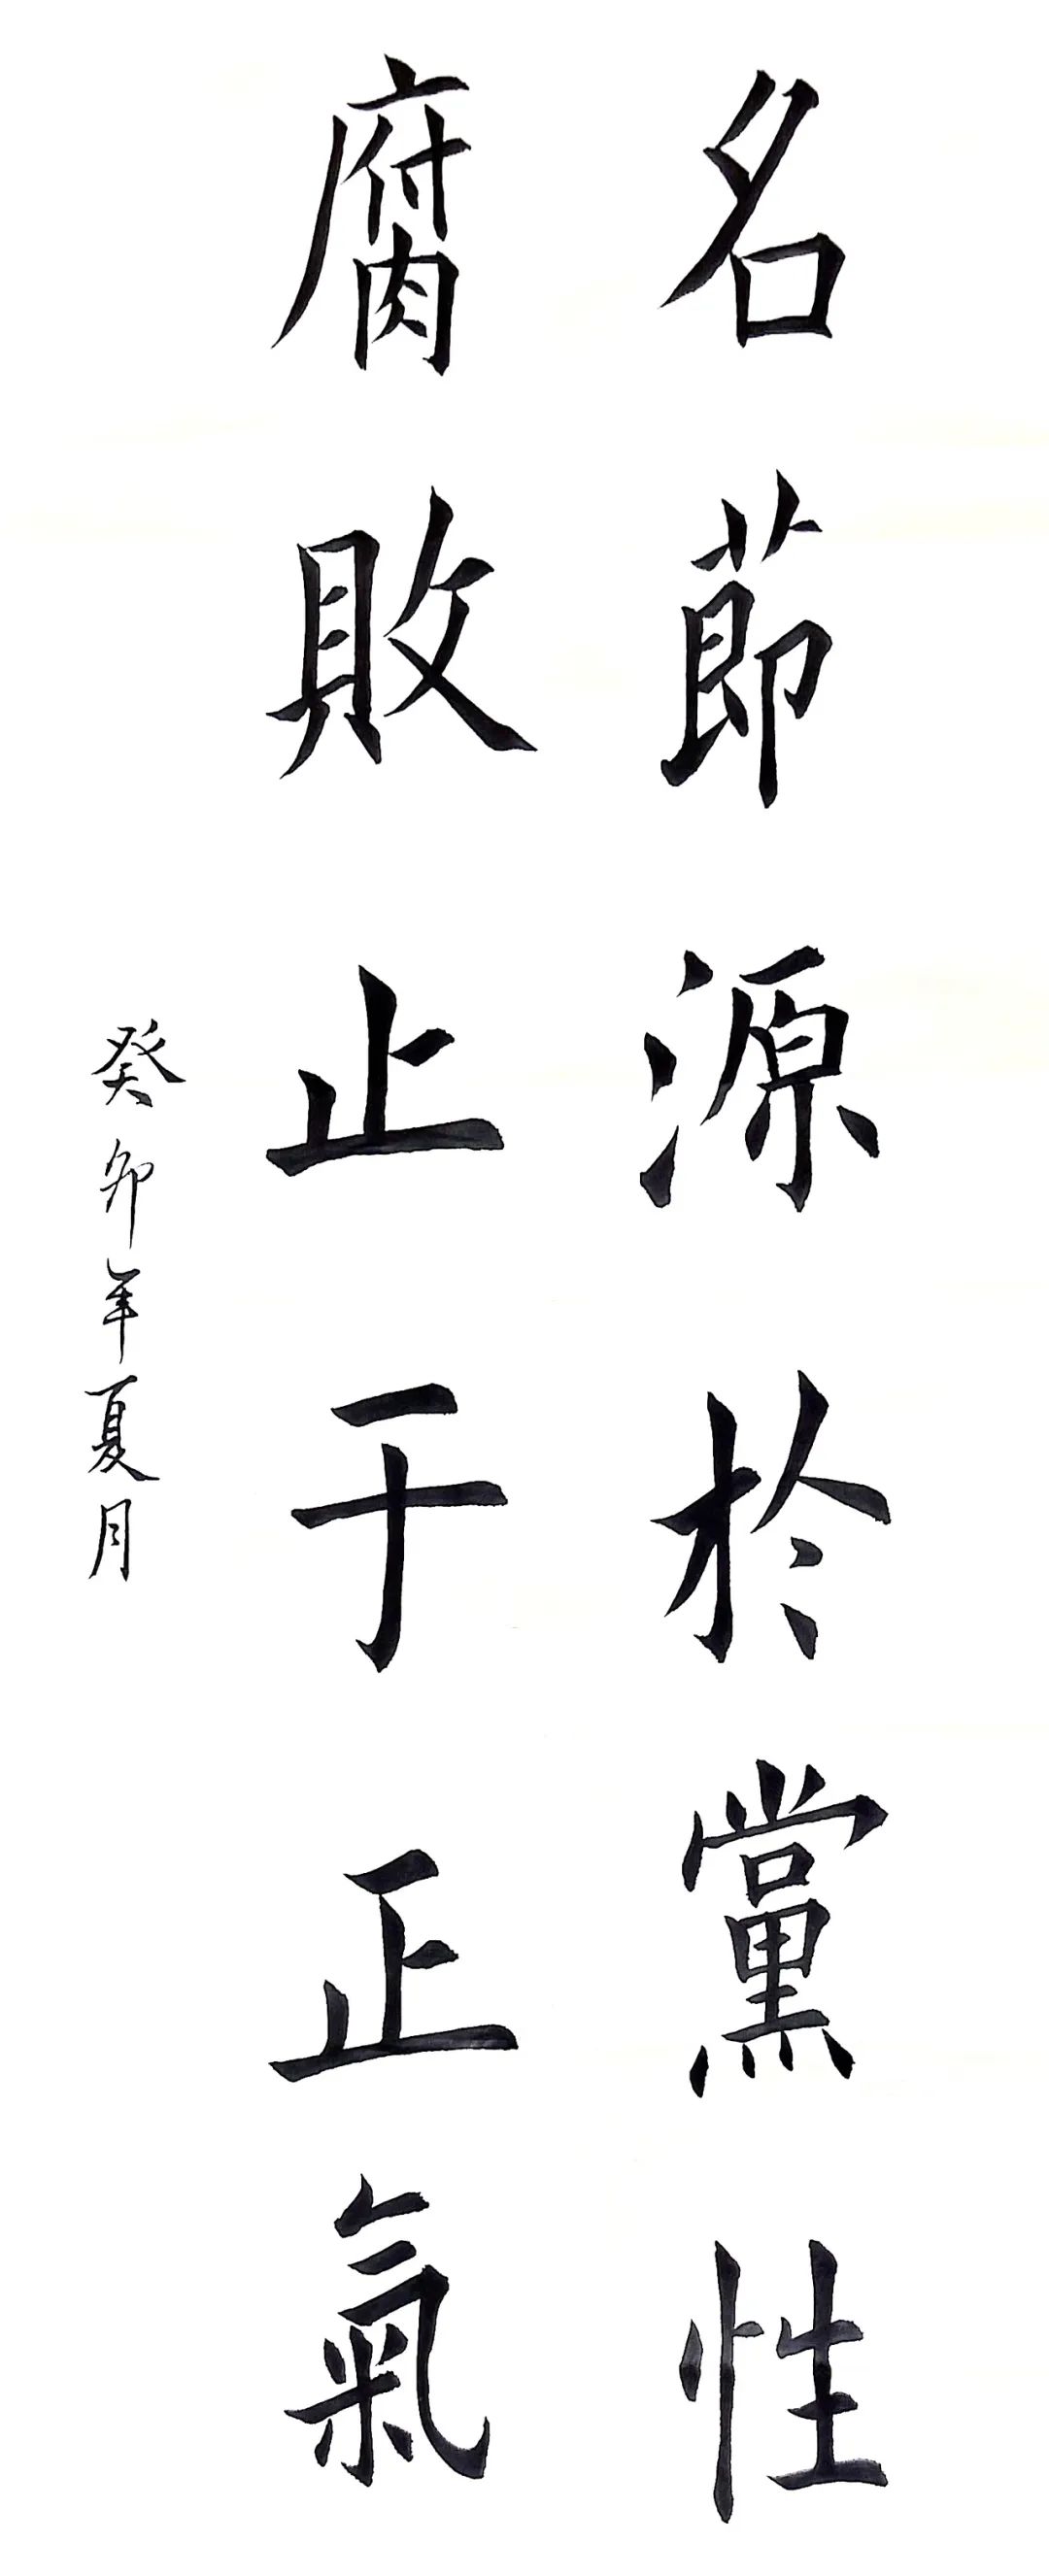 名節源於黨性
腐敗止于正氣
癸卯年夏月